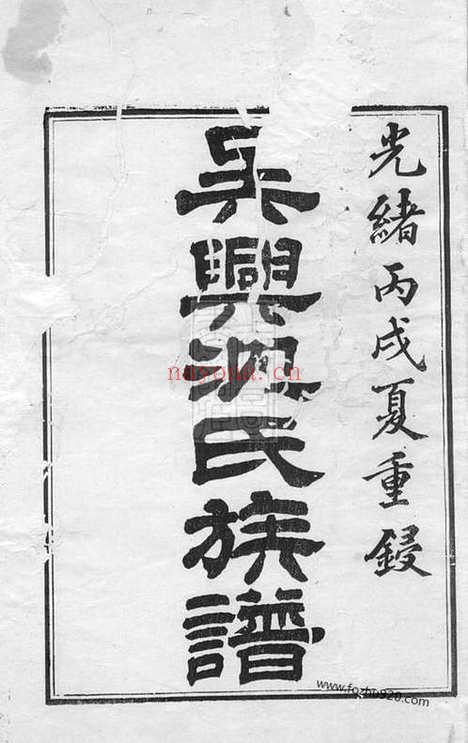 光緒丙戌夏重鋟
吳興沈氏族譜
nayona.cn
www.fozhu920.com